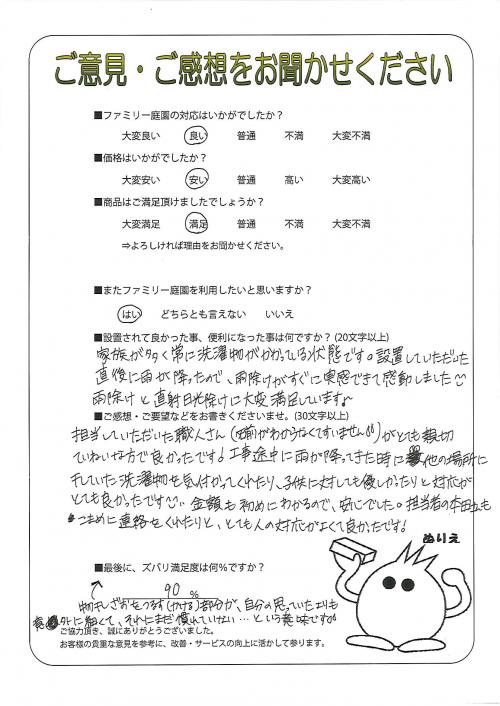 ご意見・ご感想をお聞かせください
■ファミリー庭園の対応はいかがでしたか？
大変良い 良い 普通 不満 大変不満
■価格はいかがでしたか？
大変安い 安い 普通 高い 大変高い
■商品はご満足頂けましたでしょうか？
大変満足 満足 普通 不満 大変不満
⇒よろしければ理由をお聞かせください。
■またファミリー庭園を利用したいと思いますか？
はい どちらとも言えない いいえ
■設置されて良かった事、便利になった事は何ですか？(20文字以上)
家族が多く常に洗濯物がかかっている状態です。設置していただいた
直後に雨が降ったので、雨除けがすぐに実感できて感動しました
雨除けと直射日光除けに大変満足しています。
■ご感想・ご要望などをお書きくださいませ。(30文字以上)
担当していただいた職人さん(名前がわからなくてすいません)がとても親切
ていねいな方で良かったです！工事途中に雨が降ってきた時に他の場所に
干していた洗濯物を気付かってくれたり、子供に対しても優しかったりと対応が
とても良かったです 金額も初めにわかるので、安心でした。担当者の本田さんも
こまめに連絡をくれたりと、とても人の対応がよくて良かったです！
ぬりえ
■最後に、ズバリ満足度は何％ですか？
90 %
物干しざおをつるす(かける)部分が、自分の思っていたよりも
意外に細くて、それにまだ慣れていない…という意味ですが
ご協力頂き、誠にありがとうございました。
お客様の貴重な意見を参考に、改善・サービスの向上に活かして参ります。